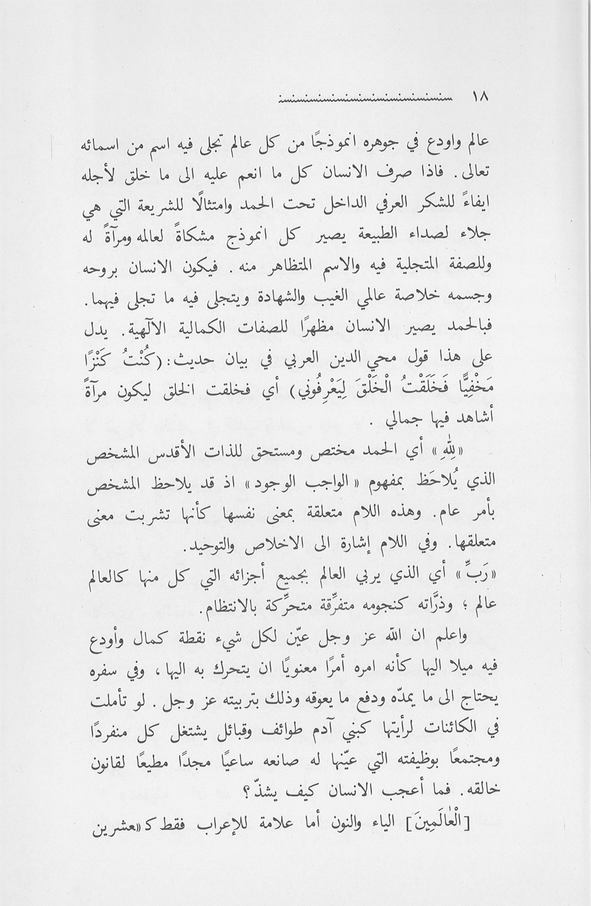 ١٨
عالم واودع في جوهره انموذجًا من كل عالم تجلى فيه اسم من اسمائه
تعالى. فاذا صرف الانسان كل ما انعم عليه الى ما خلق لأجله
ايفاءً للشكر العرفي الداخل تحت الحمد وامتثالًا للشريعة التي هي
جلاء لصداء الطبيعة يصير كل انموذج مشكاةً لعالمه ومرآةً له
وللصفة المتجلية فيه والاسم المتظاهر منه. فيكون الانسان بروحه
وجسمه خلاصة عالمي الغيب والشهادة ويتجلى فيه ما تجلى فيهما.
فبالحمد يصير الانسان مظهرًا للصفات الكمالية الآلهية. يدل
على هذا قول محي الدين العربي في بيان حديث: (كُنْتُ كَنْزًا
مَخْفِيًّا فَخَلَقْتُ الْخَلْقَ لِيَعْرِفُوني) أي فخلقت الخلق ليكون مرآةً
أشاهد فيها جمالي.
«لِلّٰهِ» أي الحمد مختص ومستحق للذات الأقدس المشخص
الذي يُلاحَظ بمفهوم «الواجب الوجود» اذ قد يلاحظ المشخص
بأمر عام. وهذه اللام متعلقة بمعنى نفسها كأنها تشربت معنى
متعلقها. وفي اللام إشارة الى الاخلاص والتوحيد.
«رَبِّ» أي الذي يربي العالم بجميع أجزائه التي كل منها كالعالم
عالم ؛ وذرَّاته كنجومه متفرِّقة متحرِّكة بالانتظام.
واعلم ان الله عز وجل عيّن لكل شيء نقطة كمال وأودع
فيه ميلا اليها كأنه امره أمرًا معنويًا ان يتحرك به اليها، وفي سفره
يحتاج الى ما يمدّه ودفع ما يعوقه وذلك بتربيته عز وجل. لو تأملت
في الكائنات لرأيتها كبني آدم طوائف وقبائل يشتغل كل منفردًا
ومجتمعًا بوظيفته التي عيّنها له صانعه ساعيًا مجدًا مطيعًا لقانون
خالقه. فما أعجب الانسان كيف يشذّ؟
[الْعٰالَمِينَ] الياء والنون أما علامة للإعراب فقط كـ«عشرين